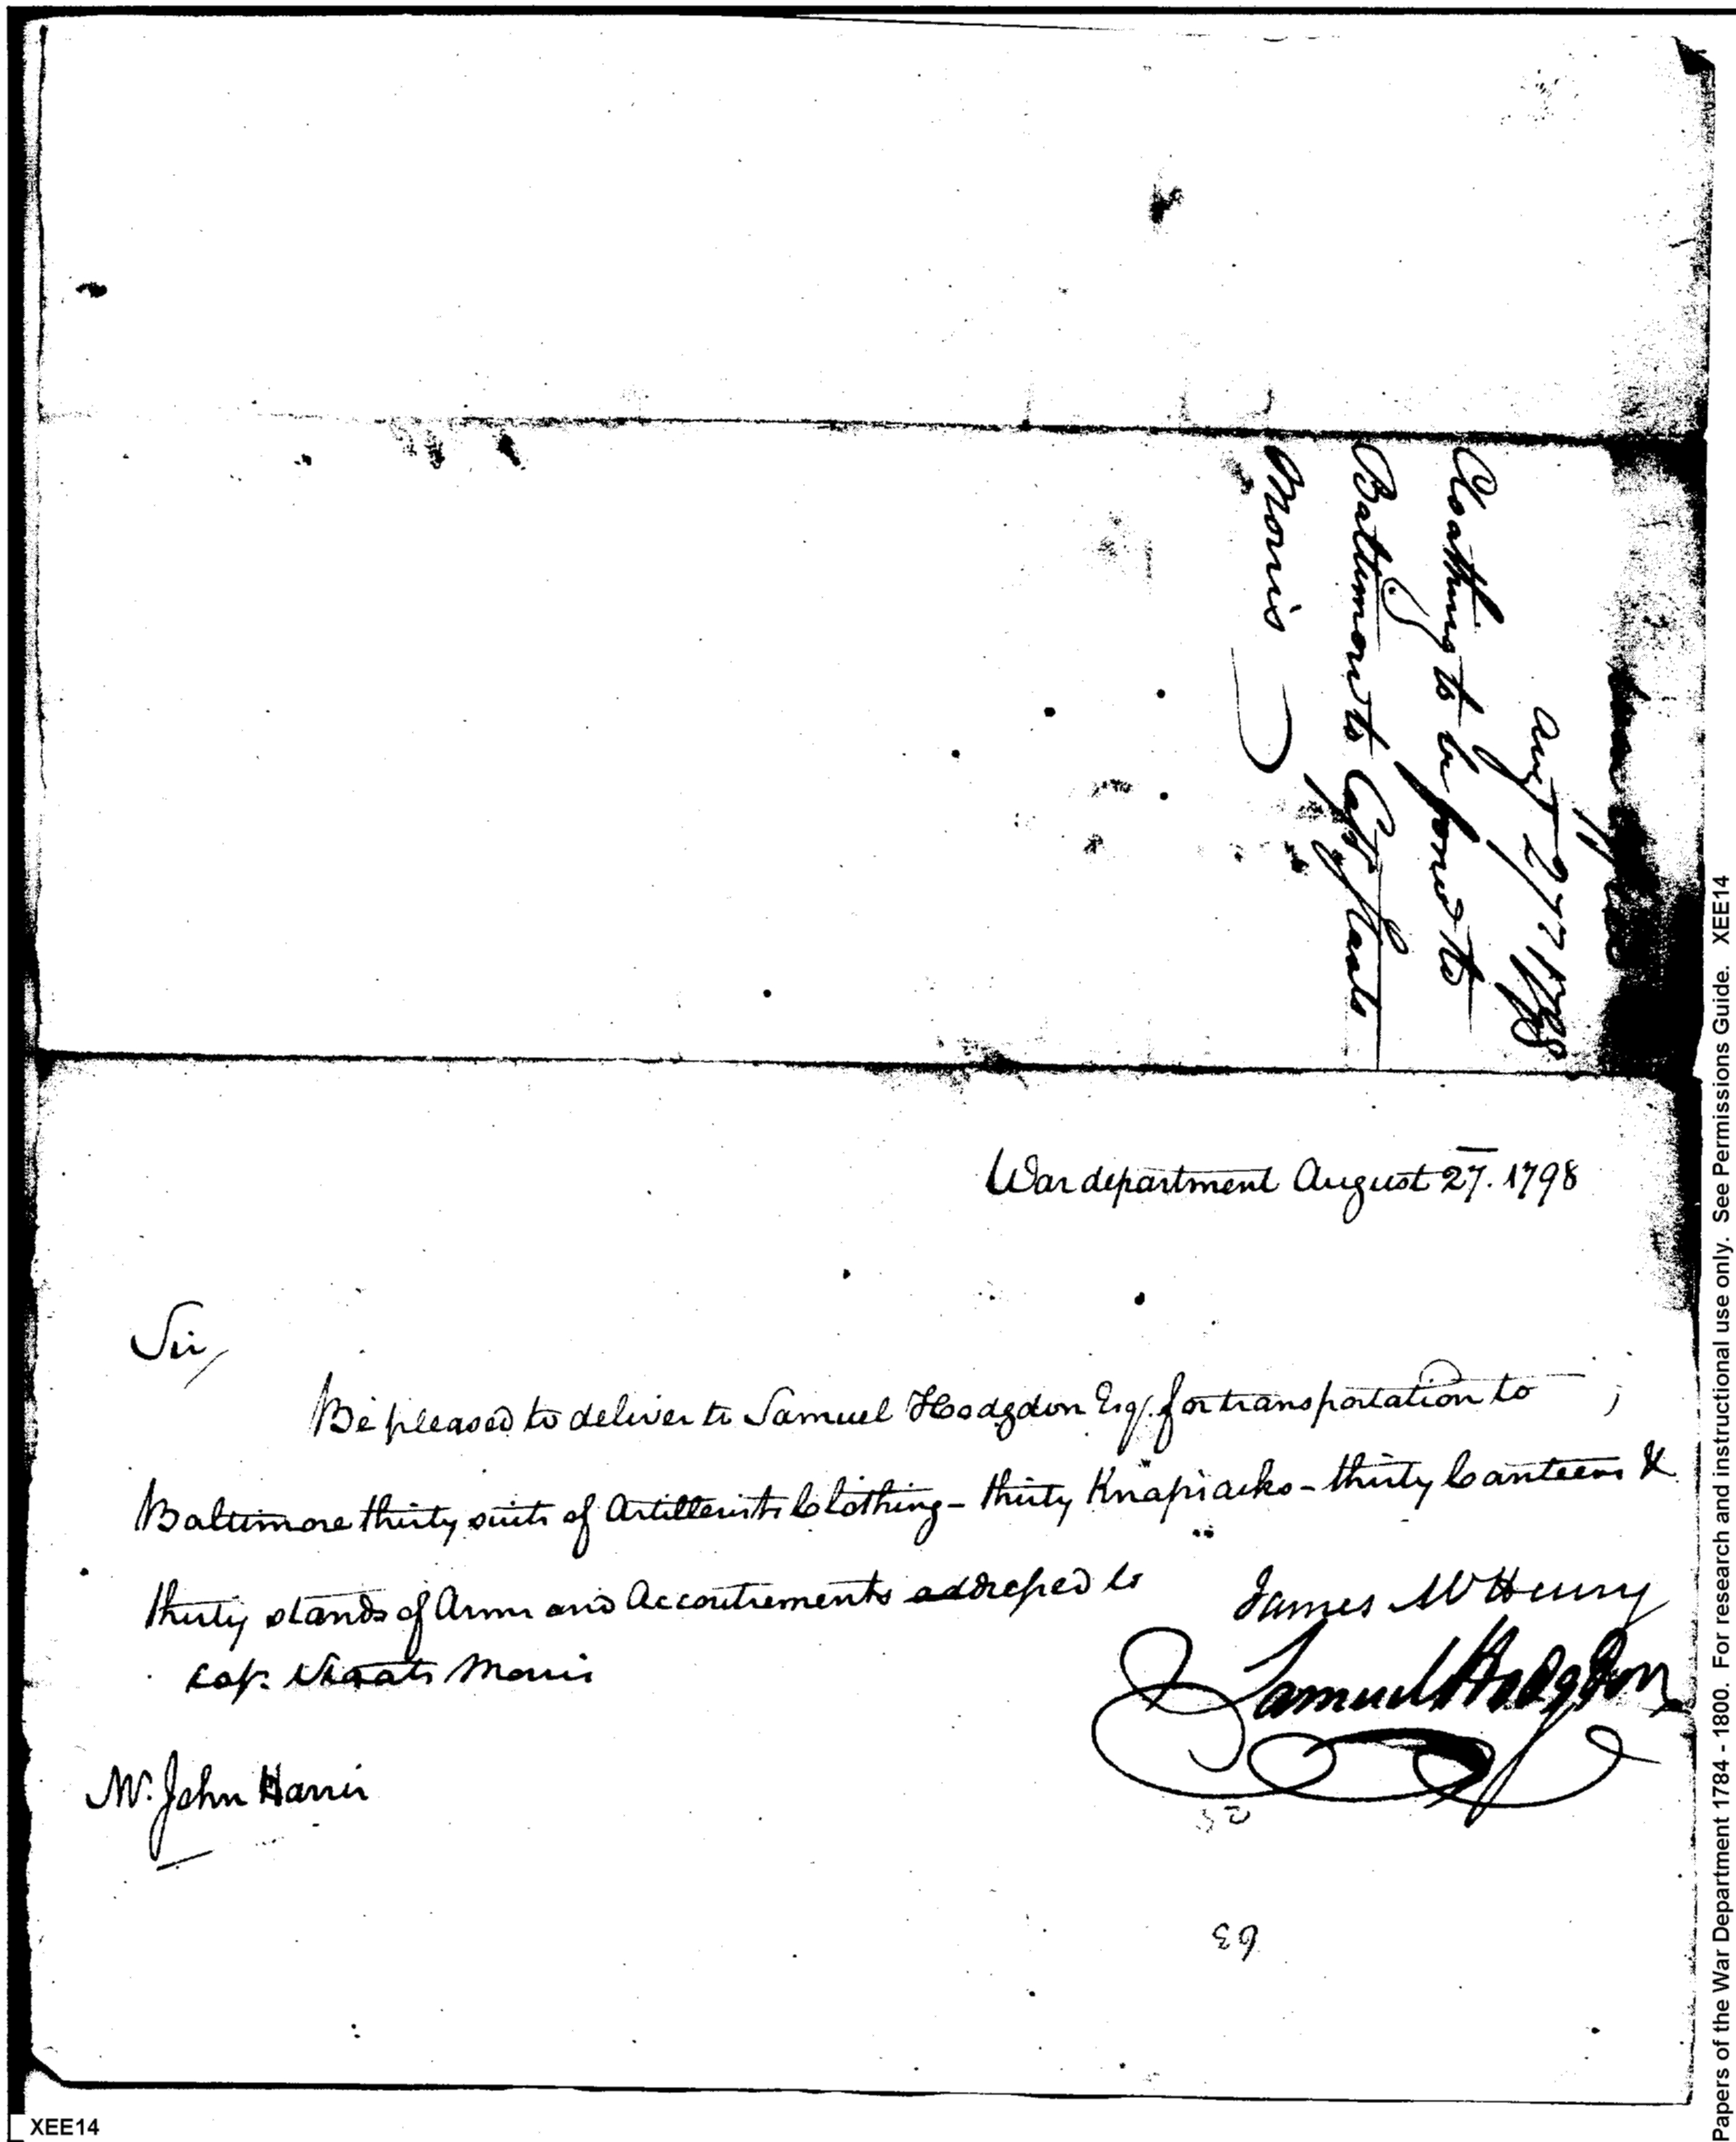 Augt 27th 1798
Cloathing to be forwd to
Baltimore to Capt Staats
Morris
War department August 27. 1798
Sir,
Be pleased to deliver to Samuel Hodgdon Esq. for transportation to
Baltimore thirty suits of Artillerists Clothing - thirty Knapsacks - thirty Canteens &
thirty stands of Arms and Accoutrements addressed to
Cap. Staats Morris
James McHenry
Samuel Hodgdon
Mr. John Harris
63
XEE14
Papers of the War Department 1784 - 1800. For research and instructional use only. See Permissions Guide. XEE14